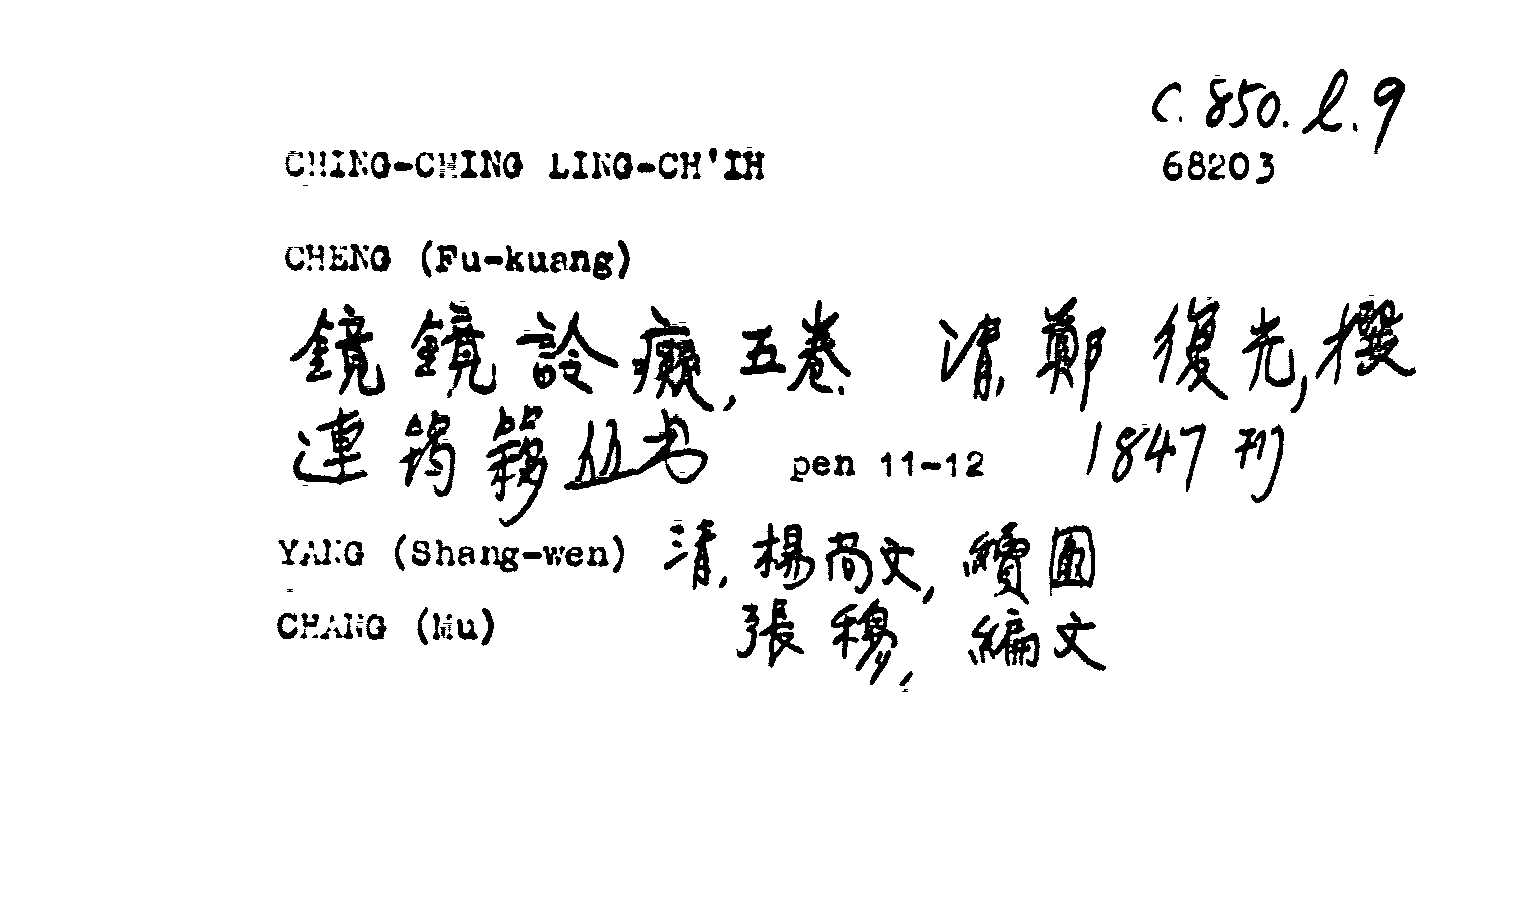 C. 850. l. 9
CHING-CHING LING-CH'IH 68203
CHENG (Fu-kuang)
鏡鏡詅癡, 五卷. 清, 鄭復光, 撰
連筠簃丛书 pen 11-12 1847 刊
YANG (Shang-wen) 清, 楊尚文, 續圖
CHANG (Mu) 張穆, 編文